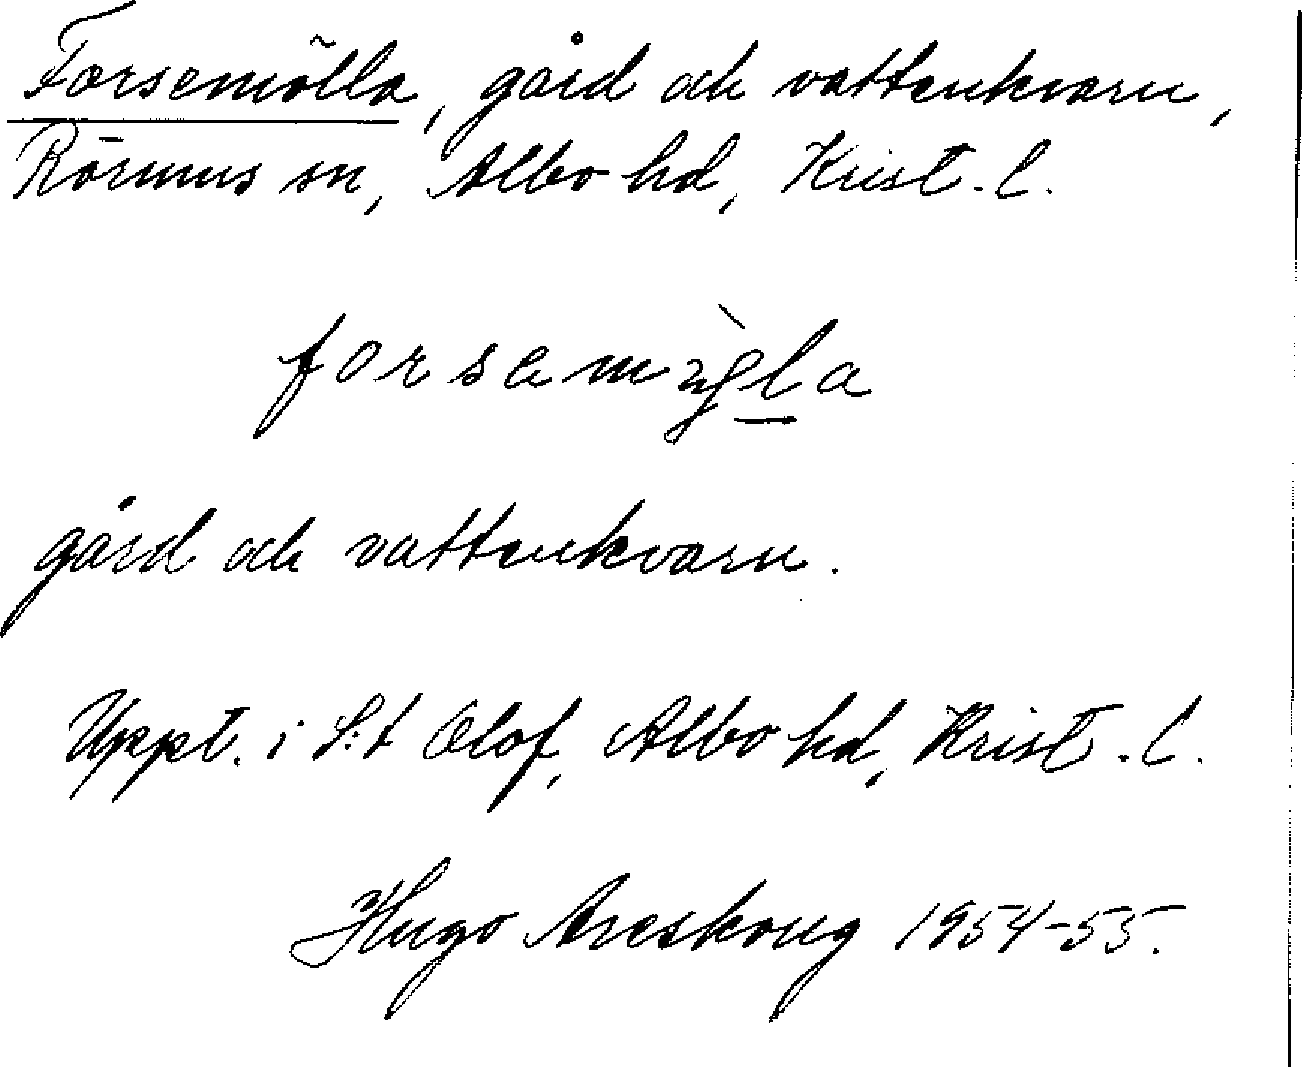 Forsemölla, gård och vattenkvarn,
Rörums sn, Albo hd, Krist. l.
gård och vattenkvarn.
Uppt. i S:t Olof, Albo hd, Krist. l.
Hugo Areskoug 1954-55.